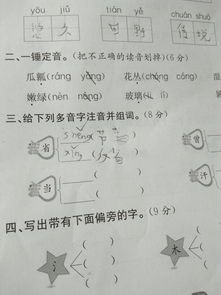 yōu jiǔ tián yě chuán shuō
悠久 田野 传说
二、一锤定音。(把不正确的读音划掉)(6分)
瓜瓤(ráng yǎng) 花丛(chóng cóng)
嫩绿(nèn nēng) 玻璃(lí lì)
三、给下列多音字注音并组词。(8分)
省 shěng(节省)
xǐng(反省)
当 ( )
( )
曾
汗
四、写出带有下面偏旁的字。(9分)
氵 ( ) 木 ( )
( ) ( )
( ) ( )